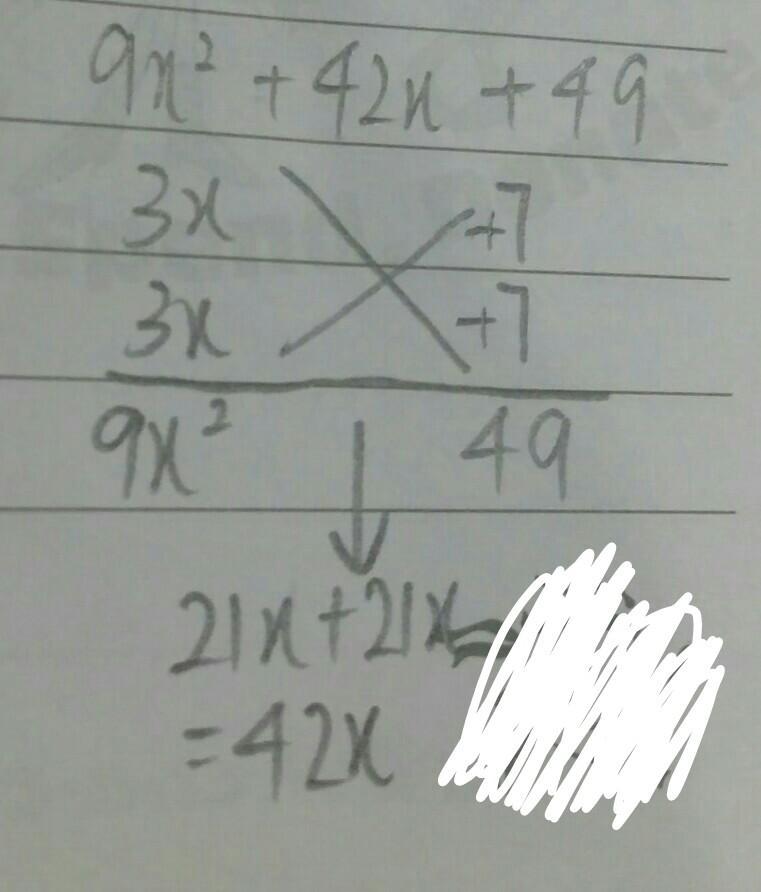 9x² + 42x + 49
3x +7
3x +7
9x² 49
21x + 21x =
= 42x